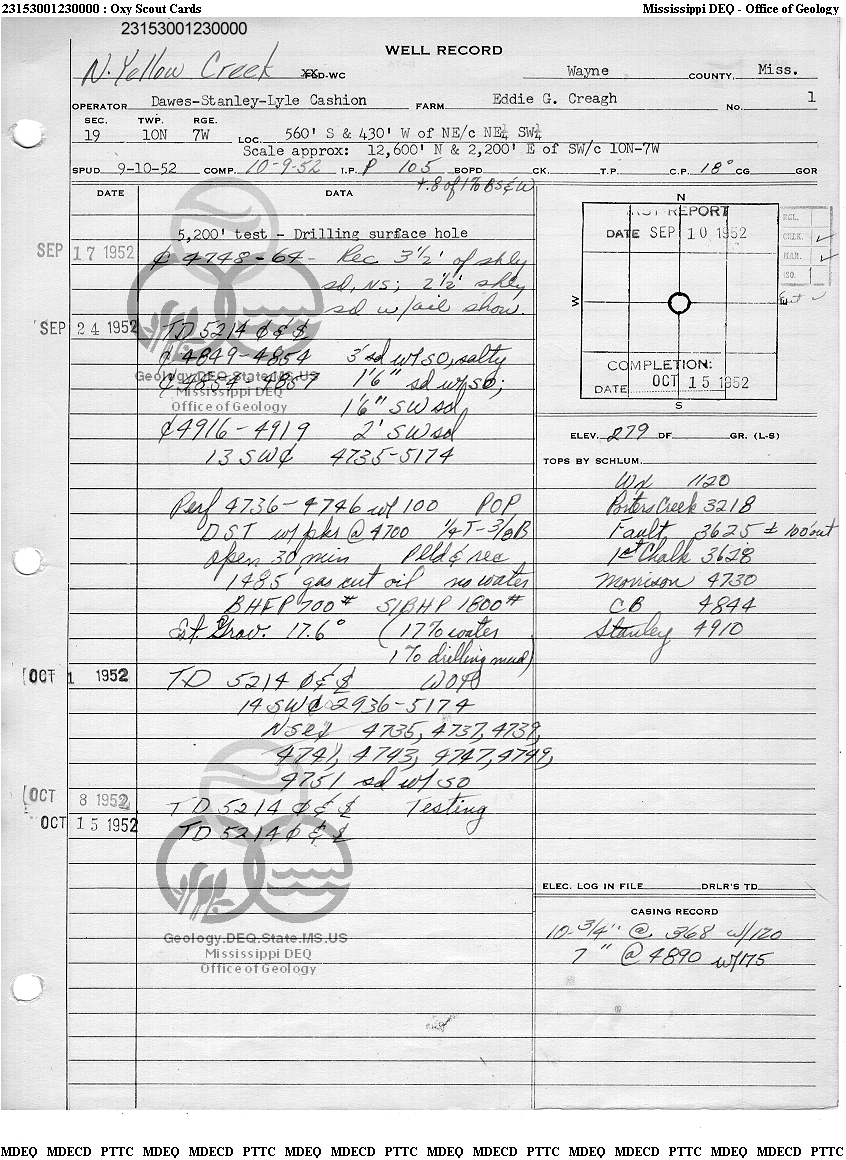 23153001230000 : Oxy Scout Cards
Mississippi DEQ - Office of Geology
23153001230000
WELL RECORD
N. Yellow Creek FLD-WC Wayne COUNTY, Miss.
OPERATOR Dawes-Stanley-Lyle Cashion FARM Eddie G. Creagh No. 1
SEC. TWP. RGE.
19 10N 7W LOC. 560' S & 430' W of NE/c NE¼ SW¼
Scale approx: 12,600' N & 2,200' E of SW/c 10N-7W
SPUD 9-10-52 COMP. 10-9-52 I.P. P 105 BOPD CK. T.P. C.P. 18° CG GOR
+ .8 of 1% BS & W
DATE DATA
5,200' test - Drilling surface hole
SEP 17 1952 ₵ 4748-64- Rec 3½' of shly
sd, NS; 2½' shly
sd w/oil show.
SEP 24 1952 TD 5214 ₵ & $
₵ 4849-4854 3' sd w/ SO, salty
₵ 4854-4857 1'6" sd w/ SO;
1'6" SW sd
₵ 4916-4919 2' SW sd
13 SW₵ 4735-5174
Perf 4736-4746 w/ 100 POP
DST w/ pkr @ 4700 ¼T-3/8B
open 30 min Plld & rec
1485 gas cut oil no water
BHFP 700# SIBHP 1800#
Est. Grav. 17.6° (17% water
1% drilling mud)
OCT 1 1952 TD 5214 ₵ & $ WOPB
14 SW₵ 2936-5174
NS₵ 4735, 4737, 4739,
4741, 4743, 4747, 4749,
4751 sd w/ SO
OCT 8 1952 TD 5214 ₵ & $ Testing
OCT 15 1952 TD 5214 ₵ & $
Geology.DEQ.State.MS.US
Mississippi DEQ
Office of Geology
Geology.DEQ.State.MS.US
Mississippi DEQ
Office of Geology
N
REPORT
DATE SEP 10 1952
W E
COMPLETION:
DATE OCT 15 1952
S
RGL.
CHLK.
MAR.
ISO.
ELEV. 279 DF. GR. (L-S)
TOPS BY SCHLUM.
Wx 1120
Porters Creek 3218
Fault 3625 ± 100' out
1st Chalk 3628
Morrison 4730
CB 4844
Stanley 4910
ELEC. LOG IN FILE DRLR'S TD
CASING RECORD
10-3/4" @ 368 w/120
7" @ 4890 w/175
MDEQ MDECD PTTC MDEQ MDECD PTTC MDEQ MDECD PTTC MDEQ MDECD PTTC MDEQ MDECD PTTC MDEQ MDECD PTTC